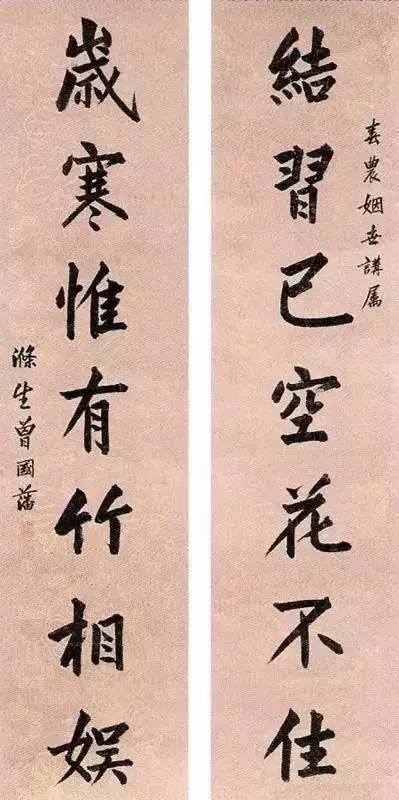 春農姻世講属
結習已空花不住
歲寒惟有竹相娱
滌生曾國藩